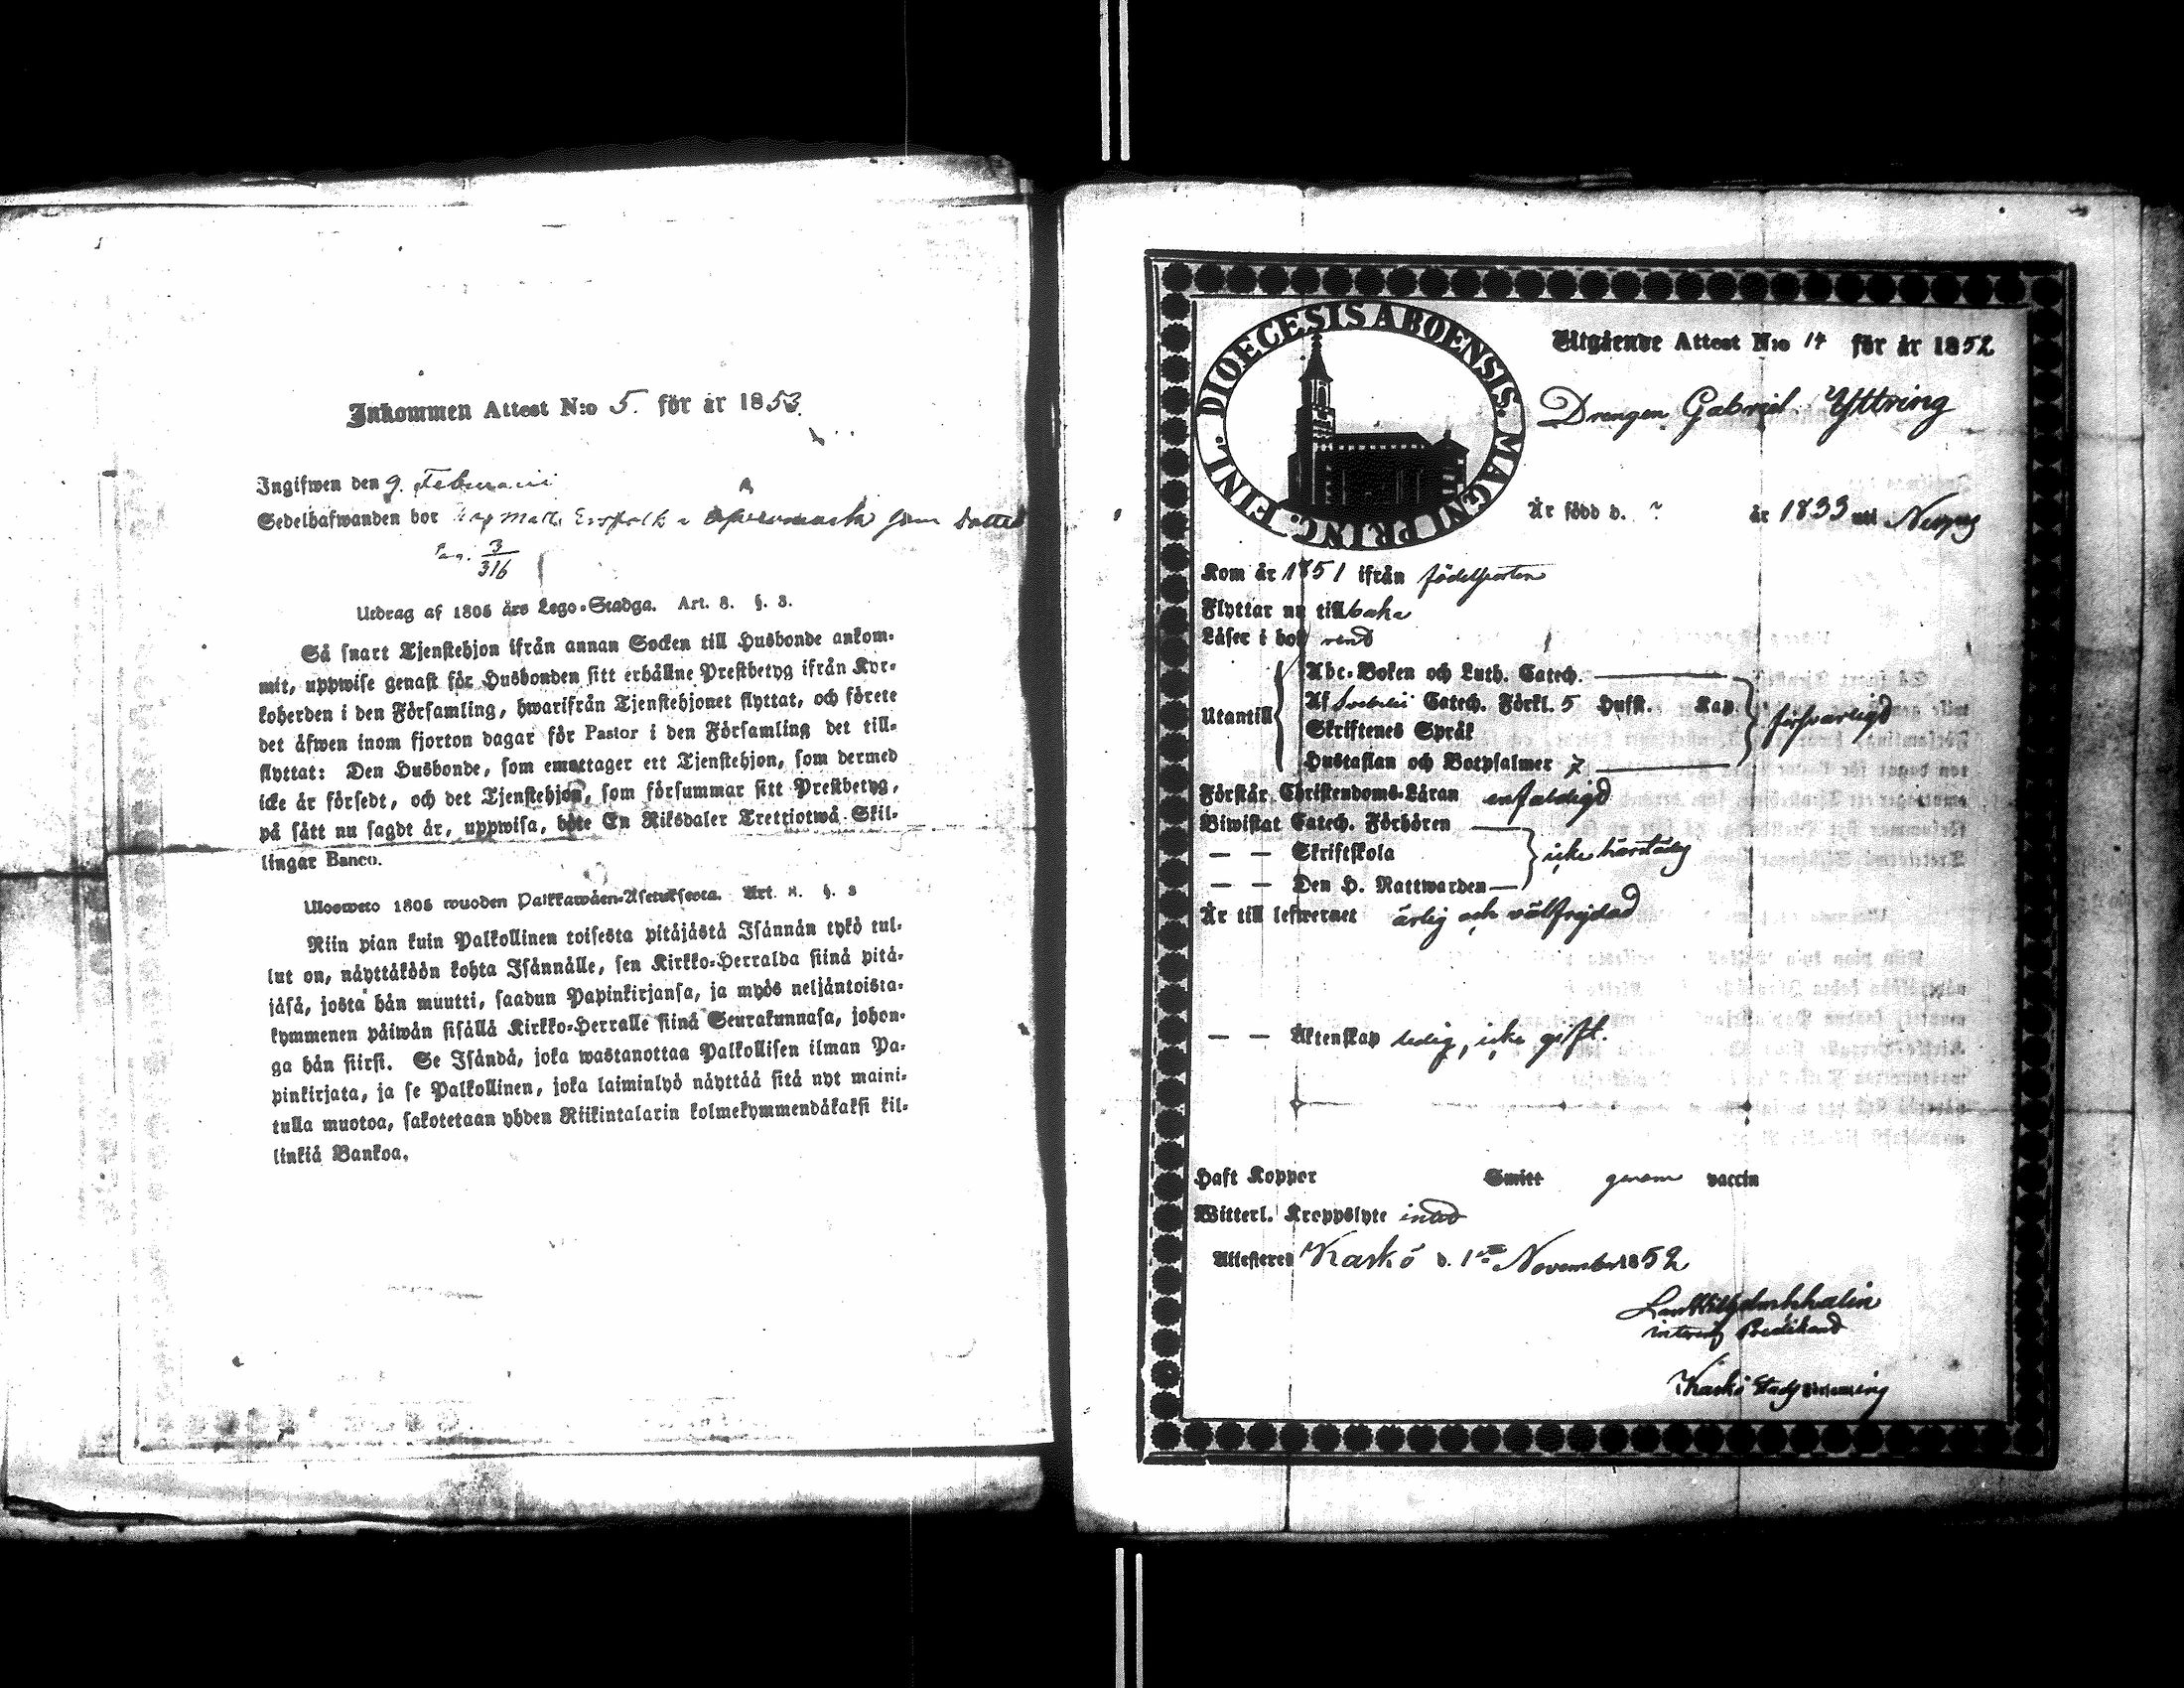 Inkommen Attest N:o 5. för år 1853.
Ingifwen den 9. Februarii
Sedelhafwanden bor
Pag. 3/316
Utdrag af 1805 års Lego-Stadga. Art. 8. §. 3.
Så snart Tjenstehjon ifrån annan Socken till Husbonde ankom-
mit, uppwise genast för Husbonden sitt erhållne Prestbetyg ifrån Kyr-
koherden i den Församling, hwarifrån Tjenstehjonet flyttat, och förete
det äfwen inom fjorton dagar för Pastor i den Församling det till-
flyttat: Den Husbonde, som emottager ett Tjenstehjon, som dermed
icke är försedt, och det Tjenstehjon, som försummar sitt Prestbetyg,
på sätt nu sagdt är, uppwisa, böte En Riksdaler Trettiotwå Skil-
lingar Banco.
Ulosweto 1805 wuoden Palkkawäen-Asetuksesta. Art. 8. §. 3
Niin pian kuin Palkollinen toisesta pitäjästä Isännän tykö tul-
lut on, näyttäköön kohta Isännälle, sen Kirkko-Herralda siinä pitä-
jäsä, josta hän muutti, saadun Papinkirjansa, ja myös neljäntoista-
kymmenen päiwän sisällä Kirkko-Herralle siinä Seurakunnasa, johon-
ga hän siirsi. Se Isändä, joka wastanottaa Palkollisen ilman Pa-
pinkirjata, ja se Palkollinen, joka laiminlyö näyttää sitä nyt maini-
tulla muotoa, sakotetaan yhden Riikintalarin kolmekymmendäkaksi kil-
linkiä Bankoa.
DIOECESIS ABOENSIS. MAGNI PRINC. FINL.
Utgående Attest N:o 14 för år 1852
Drengen Gabriel Yttring
Är född d. ? år 1833 uti
Kom år 1851 ifrån födelseorten
Flyttar nu tillbaka
Läser i bok rend
Utantill
Abc-Boken och Luth. Catech.
Af Svebilii Catech. Förkl. 5 Hufst. Kap.
Skriftenes Språk
Hustaflan och Botpsalmer 7
försvarligd
Förstår Christendoms-Läran enfaldigd
Biwistat Catech. Förhören
— — Skriftskola
— — Den H. Nattwarden
icke
Är till lefwernet ärlig och välfrejdad
— — Äktenskap ledig, icke gift.
Haft Koppor Smitt genom vaccin
Witterl. Kroppslyte intet
Attesteres Kaskö d. 1ste November 1852
Lars Wilhelm
Predikand
Kaskö Stads Församling